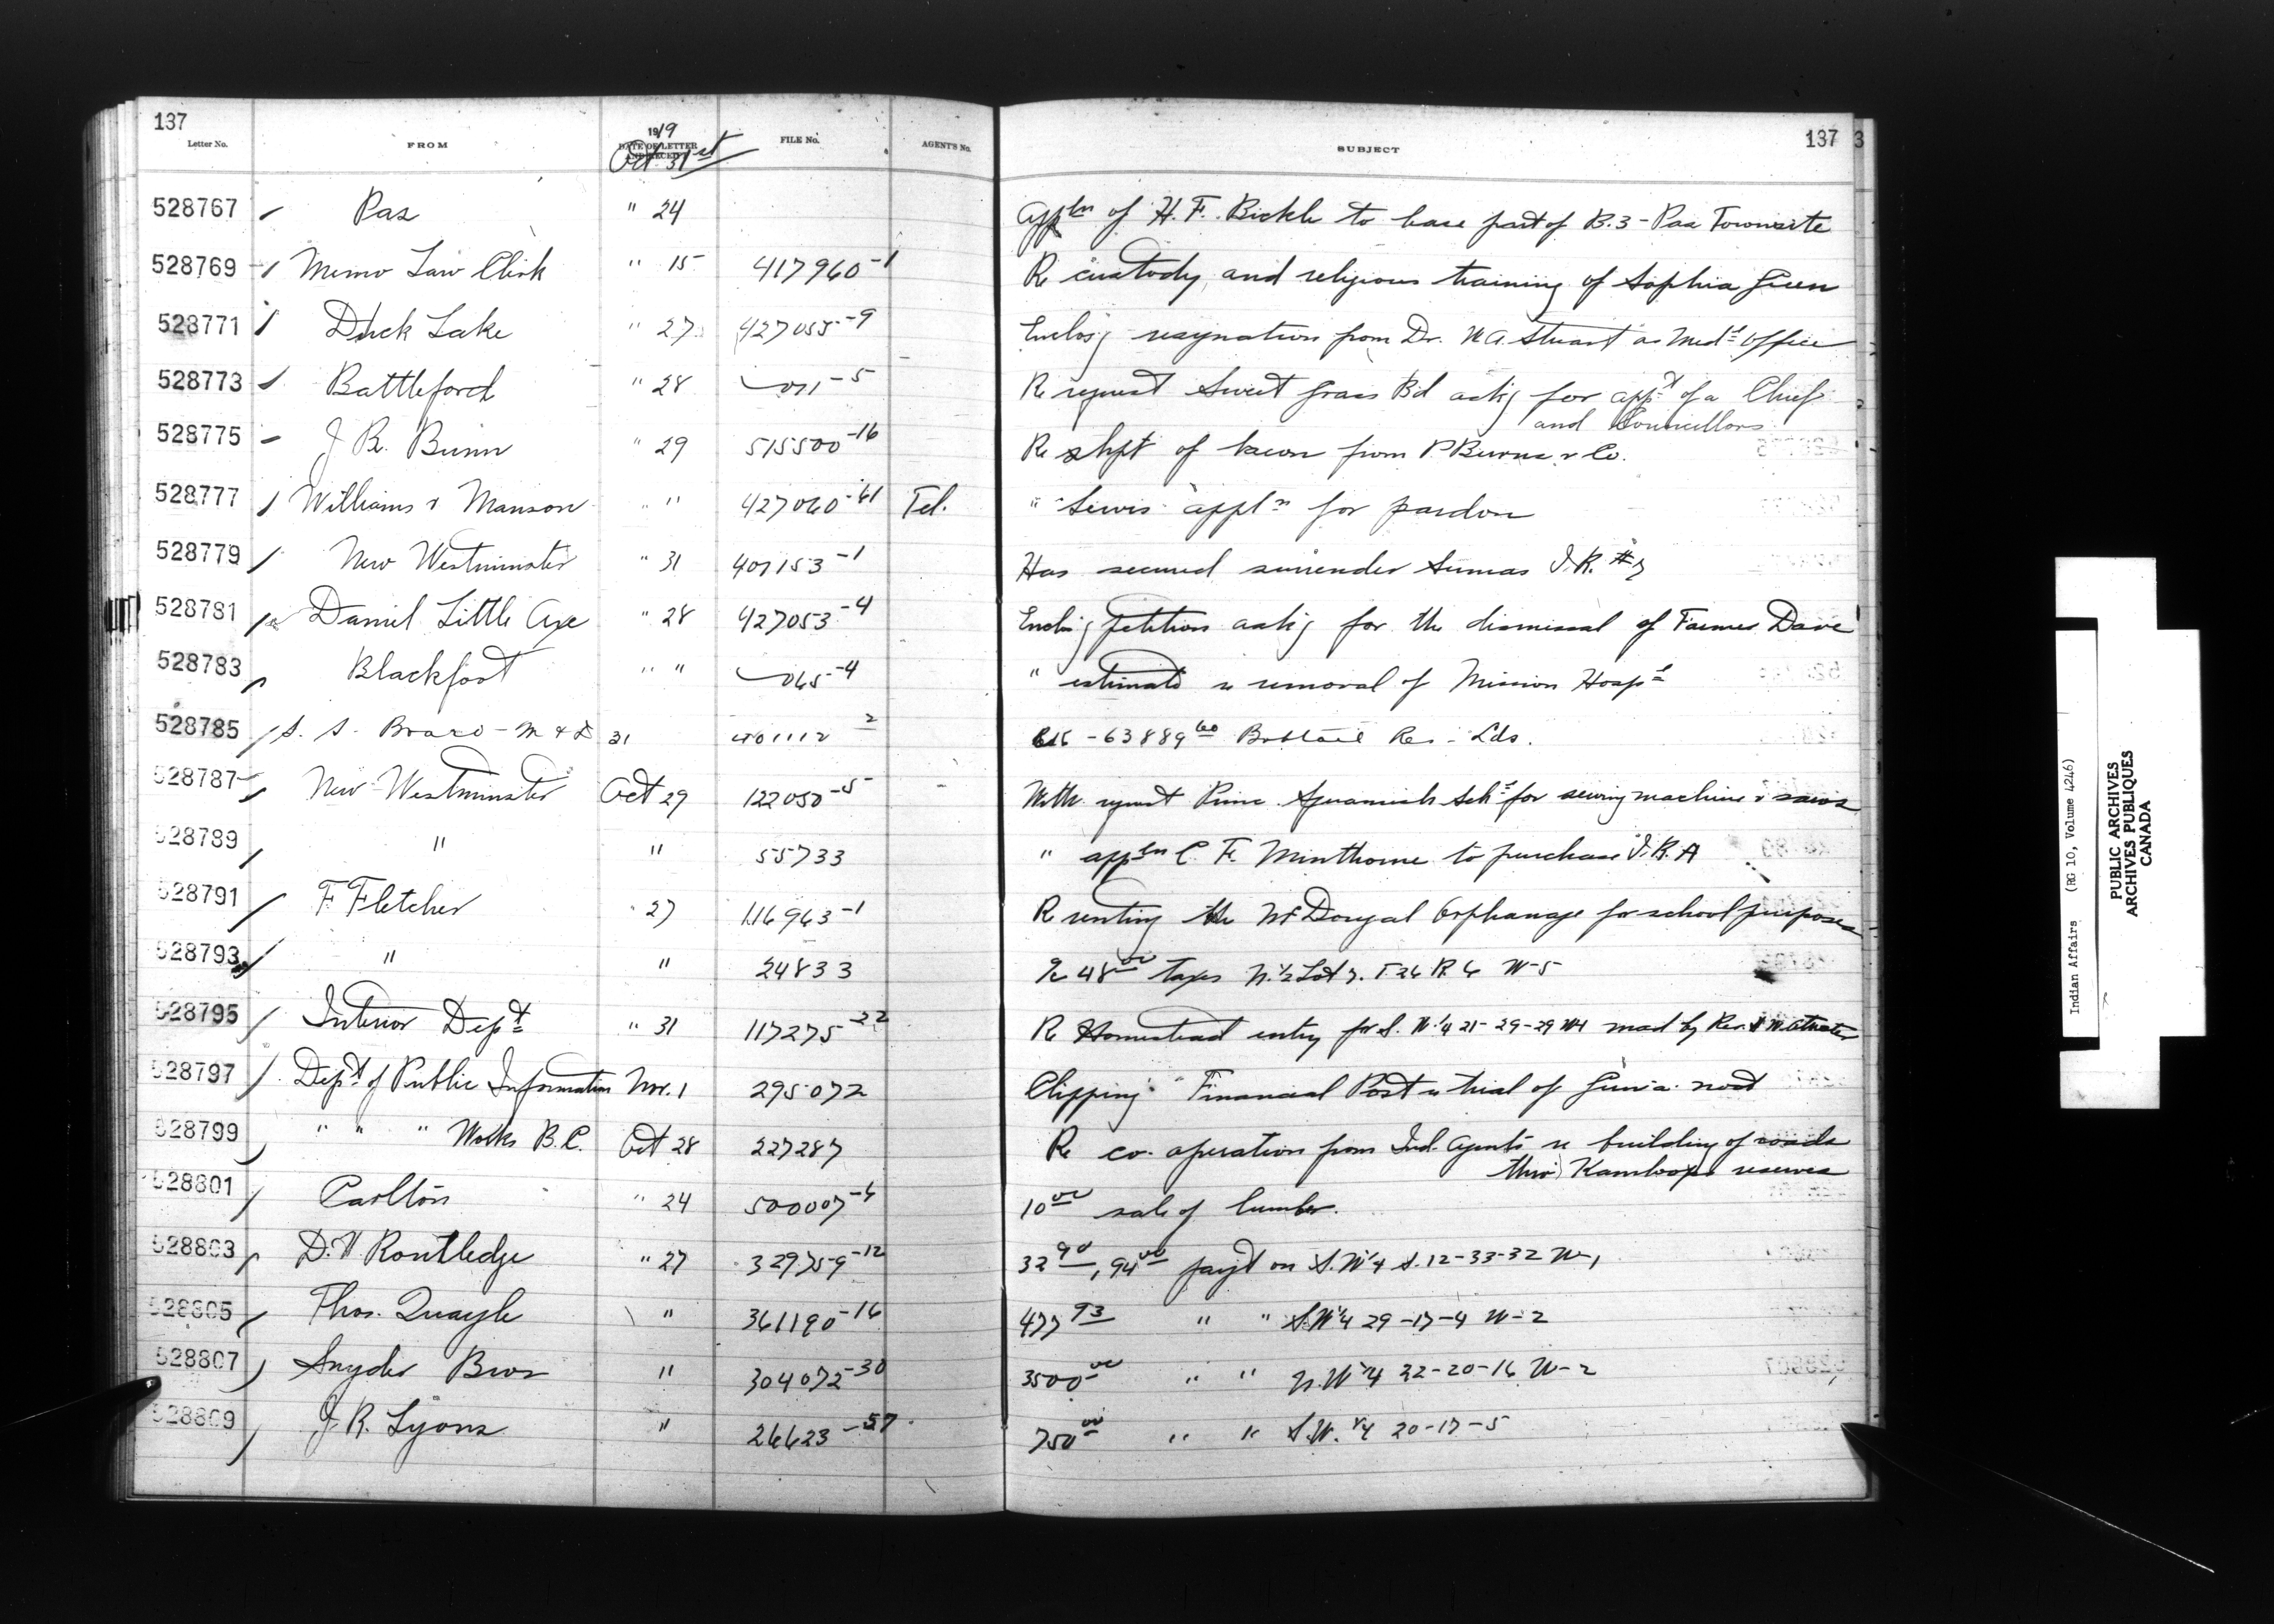 137
Letter No. FROM 1919 DATE OF LETTER AND RECEPT FILE No. AGENT'S No. SUBJECT 137 3
Oct 31st
528767 Pas " 24 Appln of H. F. Bickle to lease part of B.3 - Pas Townsite
528769 Memo Law Clerk " 15 417960-1 Re custody and religious training of Sophia Green
528771 Duck Lake " 27 427055-9 Enclos'g resignation from Dr. Stuart as Medl Officer
528773 Battleford " 28 071-5 Re request Sweet Grass Bd ask'g for appt of a Chief
and Councillors
528775 J R. Bunn " 29 515500-16 Re shpt of bacon from P. Burns & Co.
528777 Williams & Manson " " 427060-61 Tel. " Lewis appln for pardon
528779 New Westminster " 31 401153-1 Has secured surrender Sumas I.R. #7
528781 Daniel Little Axe " 28 427053-4 Enclos'g petition ask'g for the dismissal of Farmer Dave
528783 Blackfoot " " 065-4 " estimate re removal of Mission Hospl
528785 S. S. Board - M & D 31 401112 2 - 63889 60 Bobtail Res - Lds.
528787 New Westminster Oct 29 122050-5 With request Princ. Squamish Schl for sewing machine & saws
528789 " " 55733 " appln C. F. Minthorne to purchase I.R.
528791 F Fletcher " 27 116963-1 Re renting the McDougal Orphanage for school purposes
528793 " " 24833 Re 48 00 taxes N. 1/2 Lot 7. T 26 R. 6 W-5
528795 Interior Dept " 31 117275-22 Re Homestead entry for S. W 1/4 21-29-29 W4 made by Rev.
528797 Dept of Public Information Nov. 1 295072 Clipping Financial Post re trial of root
528799 " " " Works B.C. Oct 28 227287 Re co-operation from Ind. Agents re building of roads
thro Kamloops reserves
528801 Carlton " 24 500007-6 10 00 sale of lumber.
528803 D. V. Routledge " 27 329759-12 32 90, 94 00 payt on S.W 1/4 S. 12-33-32 W-1
528805 Thos. Quayle " 361190-16 477 93 " " S.W 1/4 29-17-4 W-2
528807 Snyder Bros " 304072-30 3500 00 " " N.W 1/4 32-20-16 W-2
528809 J. R. Lyons " 26623-57 750 00 " " S.W. 1/4 20-17-5
Indian Affairs (RG 10, Volume 4246)
PUBLIC ARCHIVES
ARCHIVES PUBLIQUES
CANADA